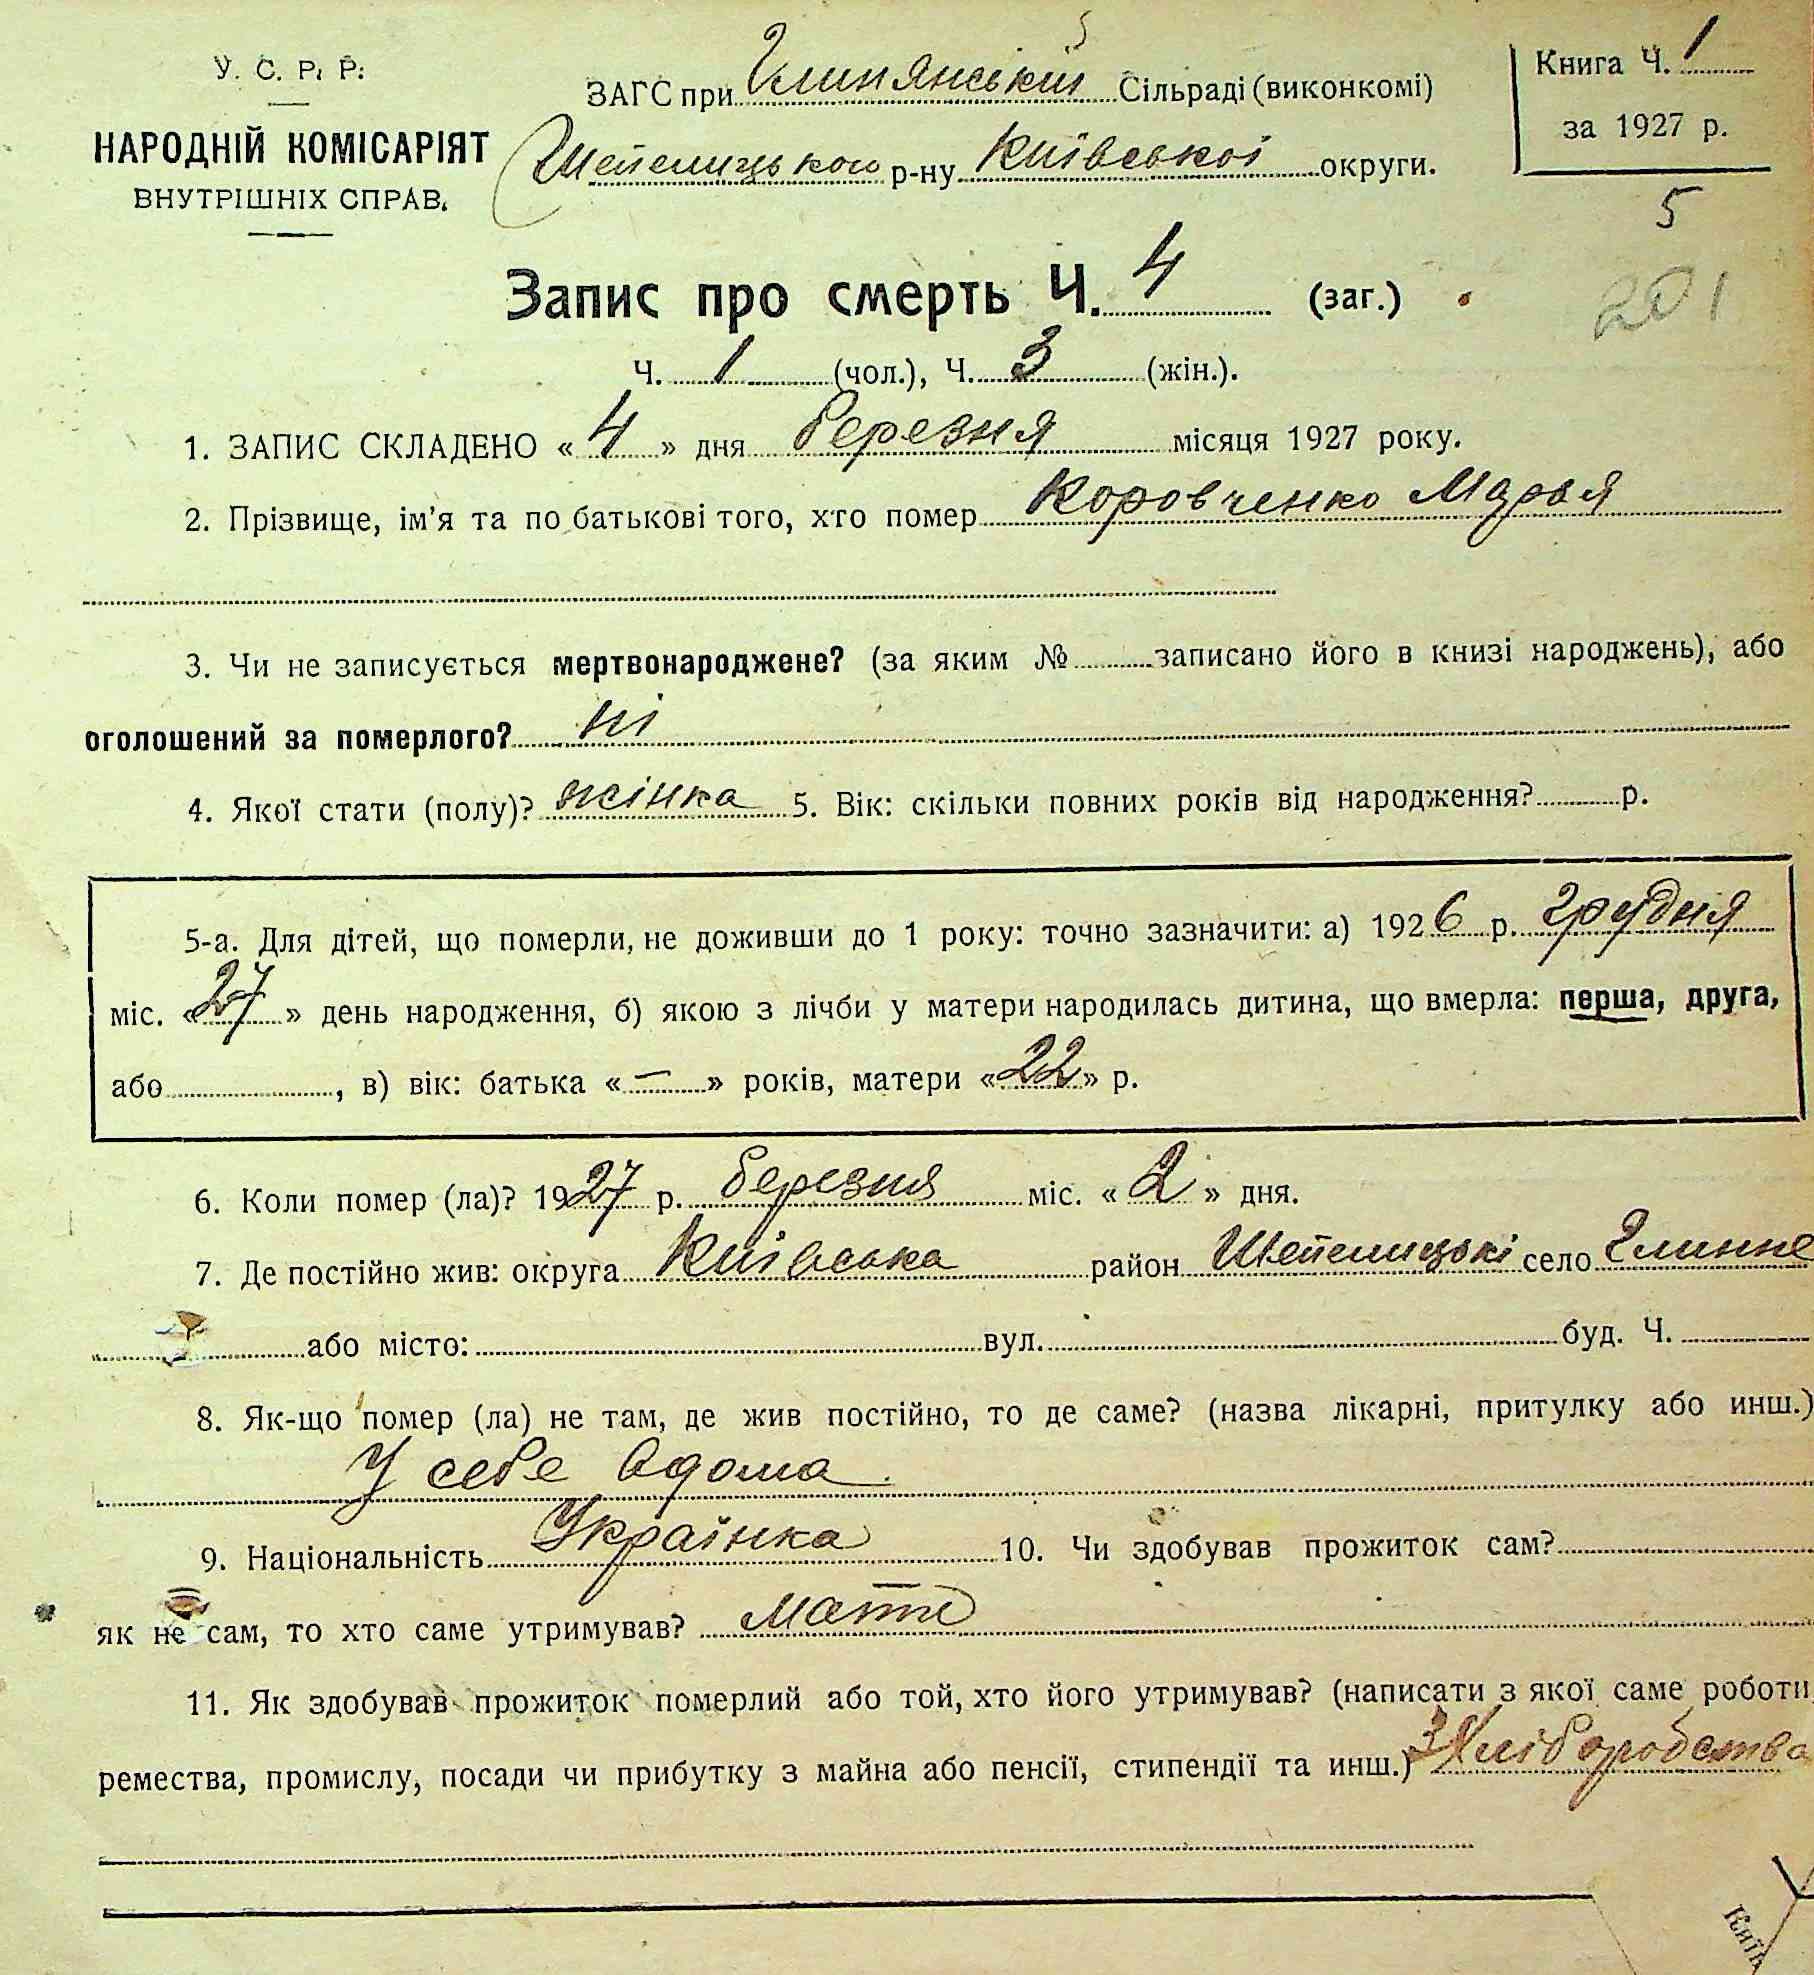 У. С. Р. Р.
НАРОДНІЙ КОМІСАРІЯТ
ВНУТРІШНІХ СПРАВ.
ЗАГС при Глинянській Сільраді (виконкомі)
Шепелицького р-ну Київської округи.
Книга Ч. 1
за 1927 р.
5
201
Запис про смерть Ч. 4 (заг.)
Ч. 1 (чол.), Ч. 3 (жін.).
1. ЗАПИС СКЛАДЕНО « 4 » дня березня місяця 1927 року.
2. Прізвище, ім'я та по батькові того, хто помер Коровченко Марья
3. Чи не записується мертвонароджене? (за яким № записано його в книзі народжень), або
оголошений за померлого? ні
4. Якої стати (полу)? жінка 5. Вік: скільки повних років від народження? р.
5-а. Для дітей, що померли, не доживши до 1 року: точно зазначити: а) 1926 р. грудня
міс. «27» день народження, б) якою з лічби у матери народилась дитина, що вмерла: перша, друга,
або , в) вік: батька « — » років, матери «22» р.
6. Коли помер (ла)? 1927 р. березня міс. « 2 » дня.
7. Де постійно жив: округа Київська район Шепелицькі село Глинне
або місто: вул. буд. Ч.
8. Як-що помер (ла) не там, де жив постійно, то де саме? (назва лікарні, притулку або инш.)
У себе вдома
9. Національність Українка 10. Чи здобував прожиток сам?
як не сам, то хто саме утримував? мати
11. Як здобував прожиток померлий або той, хто його утримував? (написати з якої саме роботи
ремества, промислу, посади чи прибутку з майна або пенсії, стипендії та инш.) З Хліборобства
Київ